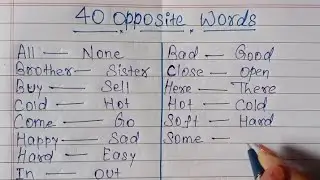 40 Opposite Words
All — None
Brother — Sister
Buy — Sell
Cold — Hot
Come — Go
Happy — Sad
Hard — Easy
In — Out
Bad — Good
Close — Open
Here — There
Hot — Cold
Soft — Hard
Some —